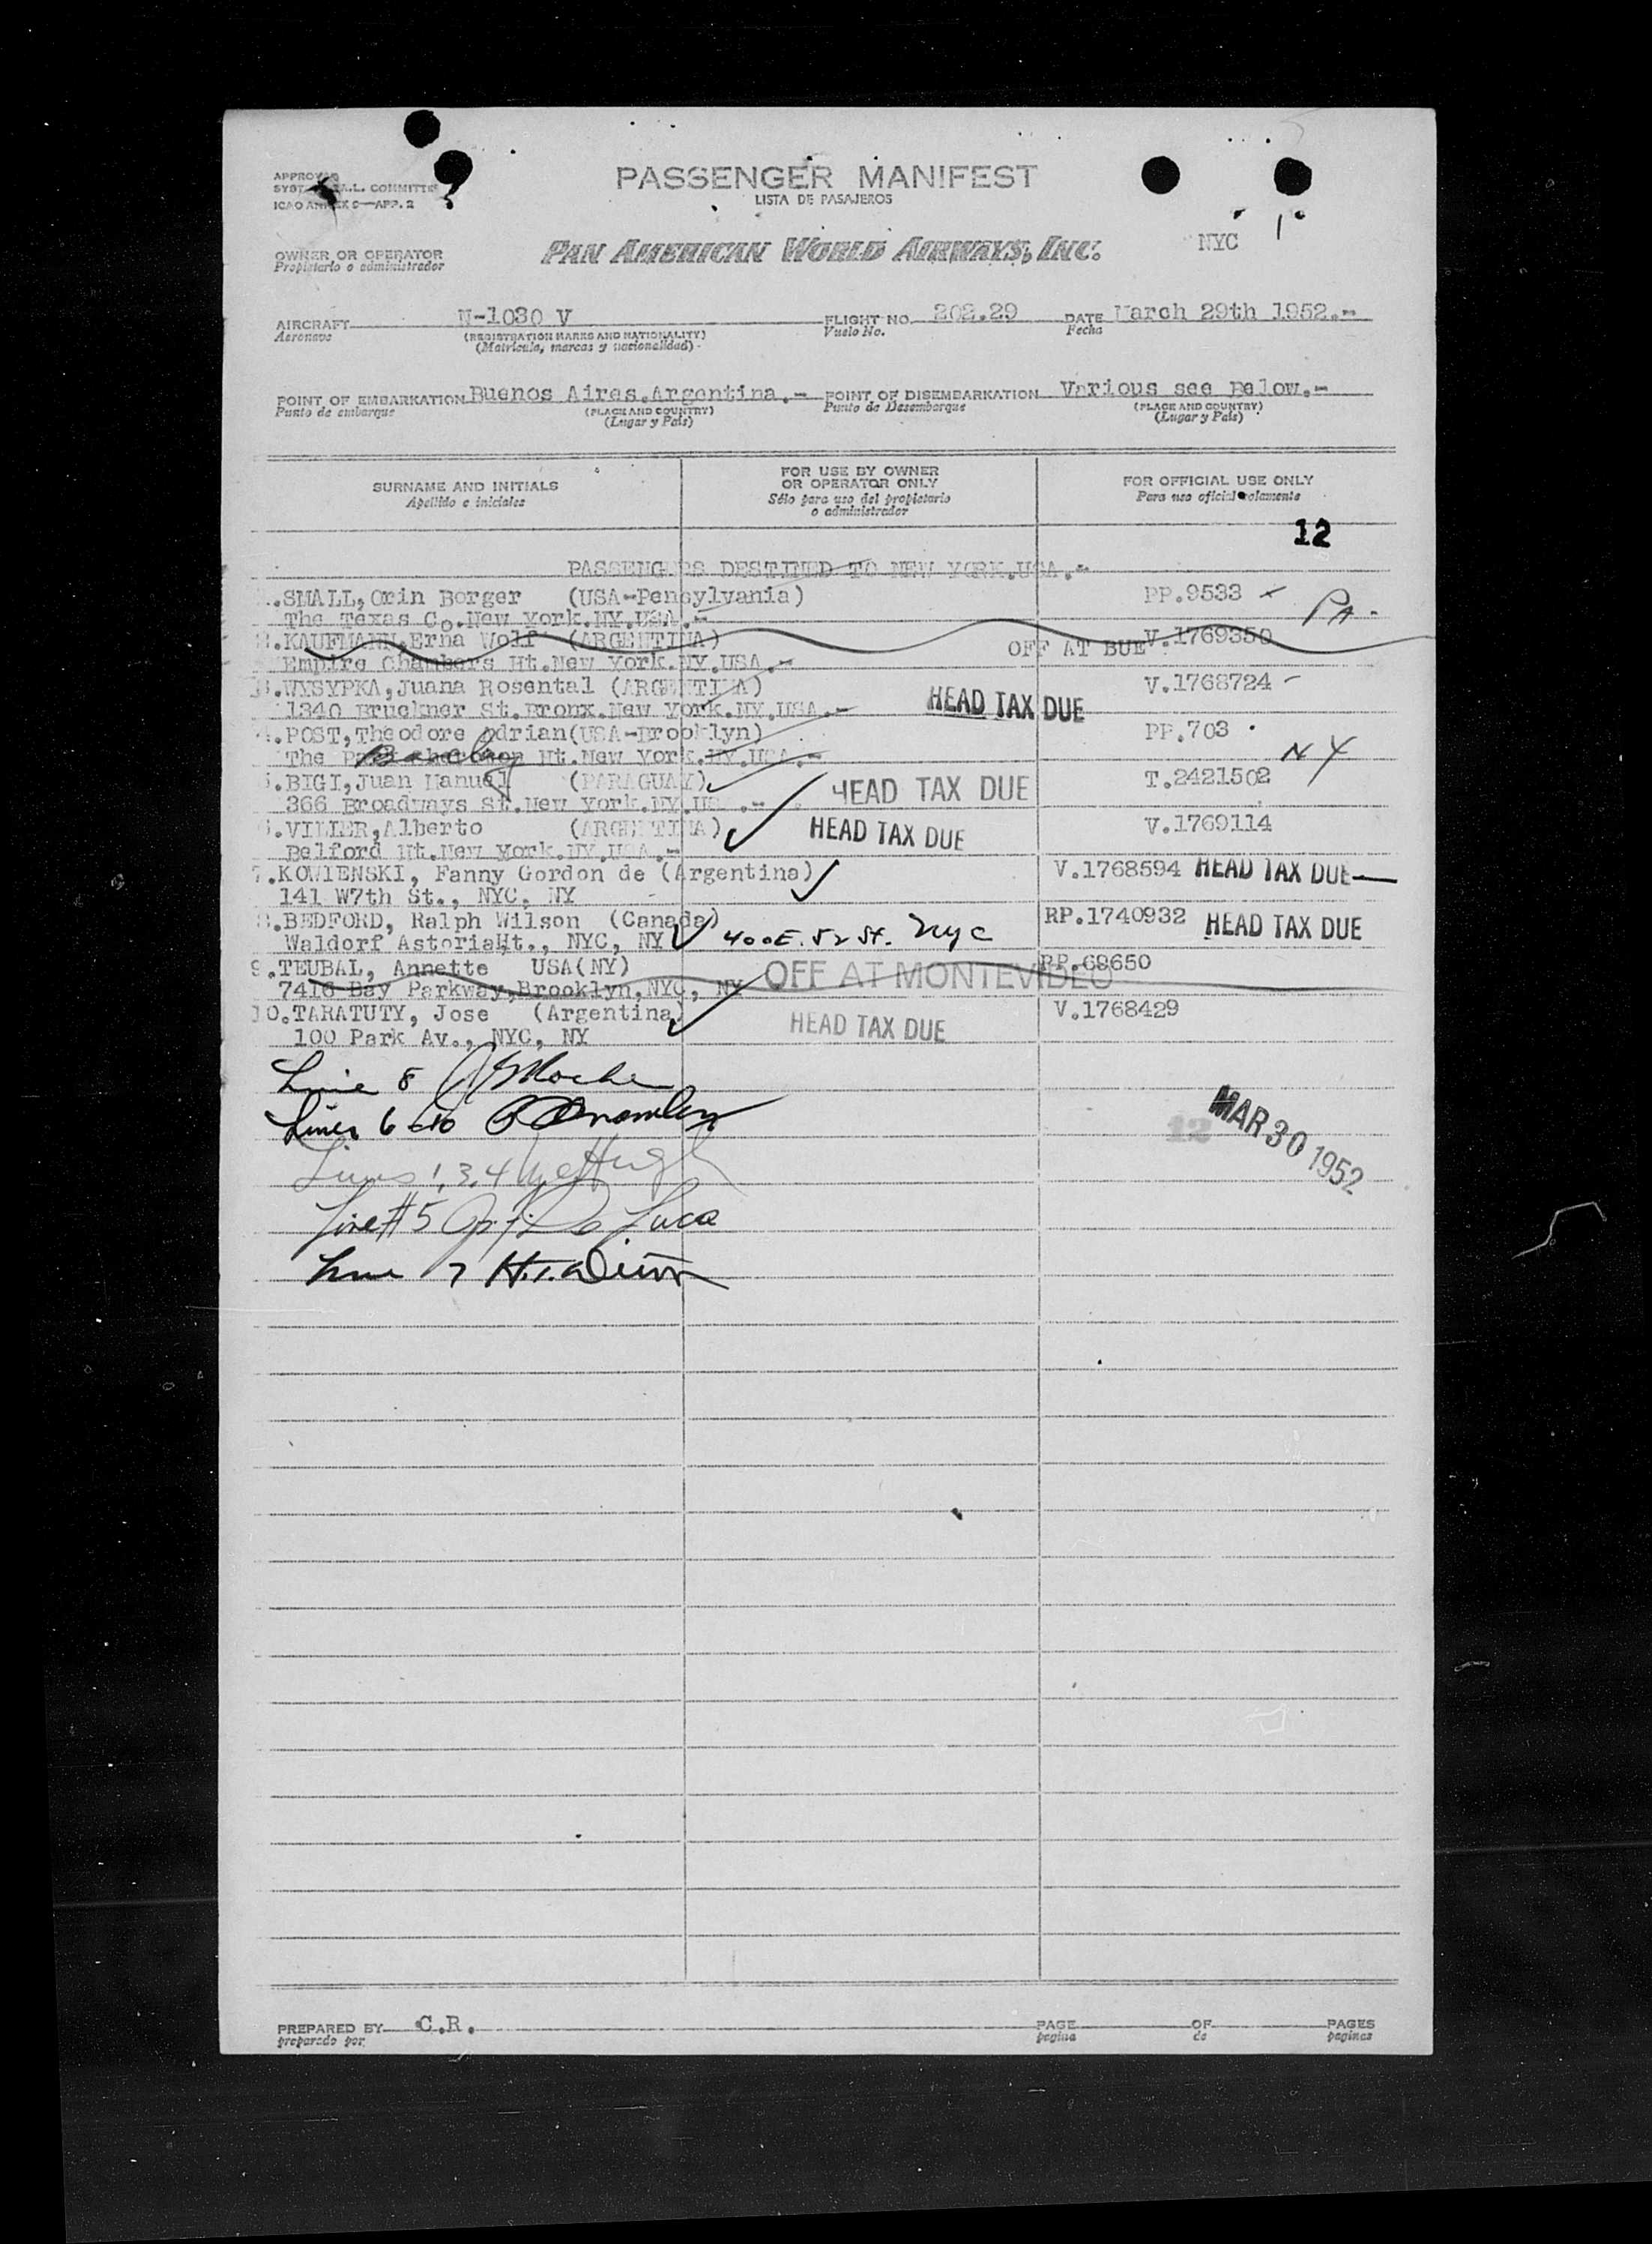 PASSENGER MANIFEST
LISTA DE PASAJEROS
APPROVED
SYST. A.L. COMMITTE
ICAO ANNEX 9—APP. 2
OWNER OR OPERATOR
Propietario o administrador
PAN AMERICAN WORLD AIRWAYS, INC.
NYC
AIRCRAFT N-1030 V FLIGHT NO. 202.29 DATE March 29th 1952.-
Aeronave (REGISTRATION MARKS AND NATIONALITY) Vuelo No. Fecha
(Matrícula, marcas y nacionalidad)
POINT OF EMBARKATION Buenos Aires.Argentina.- POINT OF DISEMBARKATION Various see Below.-
Punto de embarque (PLACE AND COUNTRY) Punto de Desembarque (PLACE AND COUNTRY)
(Lugar y País) (Lugar y País)
SURNAME AND INITIALS FOR USE BY OWNER OR OPERATOR ONLY FOR OFFICIAL USE ONLY
Apellido e iniciales Sólo para uso del propietario o administrador Para uso oficial solamente
12
PASSENGERS DESTINED TO NEW YORK.USA.-
.SMALL,Orin Borger (USA-Pensylvania) PP.9533 PA.
The Texas Co.New York.NY.USA.-
.KAUFMANN,Erna Wolf (ARGENTINA) OFF AT BUE V.1769350
Empire Chambers Ht.New York.NY.USA.-
3.WYSYPKA,Juana Rosental (ARGENTINA) V.1768724
1340 Bruckner St.Bronx.New York.NY.USA.- HEAD TAX DUE
4.POST,Theodore Adrian(USA-Brooklyn) PP.703
The Ht.New York.NY.USA.- NY
5.BIGI,Juan Manuel (PARAGUAY) HEAD TAX DUE T.2421502
366 Broadways St.New York.NY.US .-
6.VILIER,Alberto (ARGENTINA) HEAD TAX DUE V.1769114
Belford Ht.New York.NY.USA.-
7.KOWIENSKI, Fanny Gordon de (Argentina) V.1768594 HEAD TAX DUE
141 W7th St., NYC, NY
8.BEDFORD, Ralph Wilson (Canada) RP.1740932 HEAD TAX DUE
Waldorf AstoriaHt., NYC, NY 400 E. 52 St. NYC
9.TEUBAL, Annette USA(NY) OFF AT MONTEVIDEO RP.68650
7416 Bay Parkway,Brooklyn,NYC, NY
10.TARATUTY, Jose (Argentina) HEAD TAX DUE V.1768429
100 Park Av., NYC, NY
Line 8
Lines 6-10
12 MAR 30 1952
Lines 1,3,4
Line #5 De Luca
Line 7
PREPARED BY C.R. PAGE OF PAGES
preparado por pagina de paginas